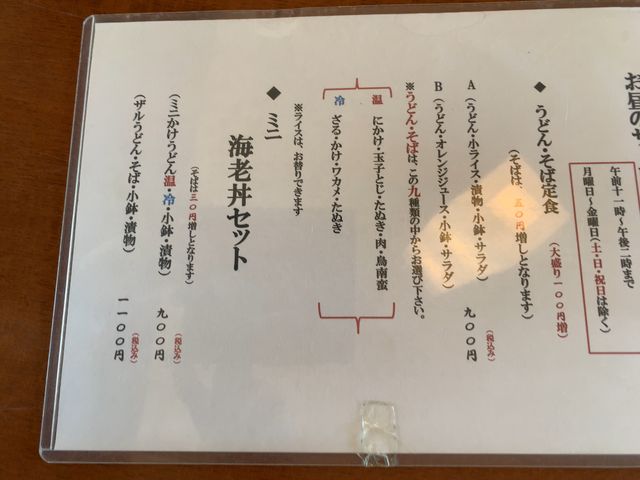 お昼の
午前十一時〜午後二時まで
月曜日〜金曜日(土・日・祝日は除く)
◆ うどん・そば定食
(大盛り一〇〇円増)
(そばは、五〇円増しとなります)
A (うどん・小ライス・漬物・小鉢・サラダ)
B (うどん・オレンジジュース・小鉢・サラダ)
(税込み)
九〇〇円
※うどん・そばは、この九種類の中からお選び下さい。
温 にかけ・玉子とじ・たぬき・肉・鳥南蛮
冷 ざる・かけ・ワカメ・たぬき
※ライスは、お替りできます
◆ ミニ
海老丼セット
(そばは三〇円増しとなります)
(ミニかけうどん温・冷・小鉢・漬物)
(税込み)
九〇〇円
(ザルうどん・そば・小鉢・漬物)
(税込み)
一一〇〇円